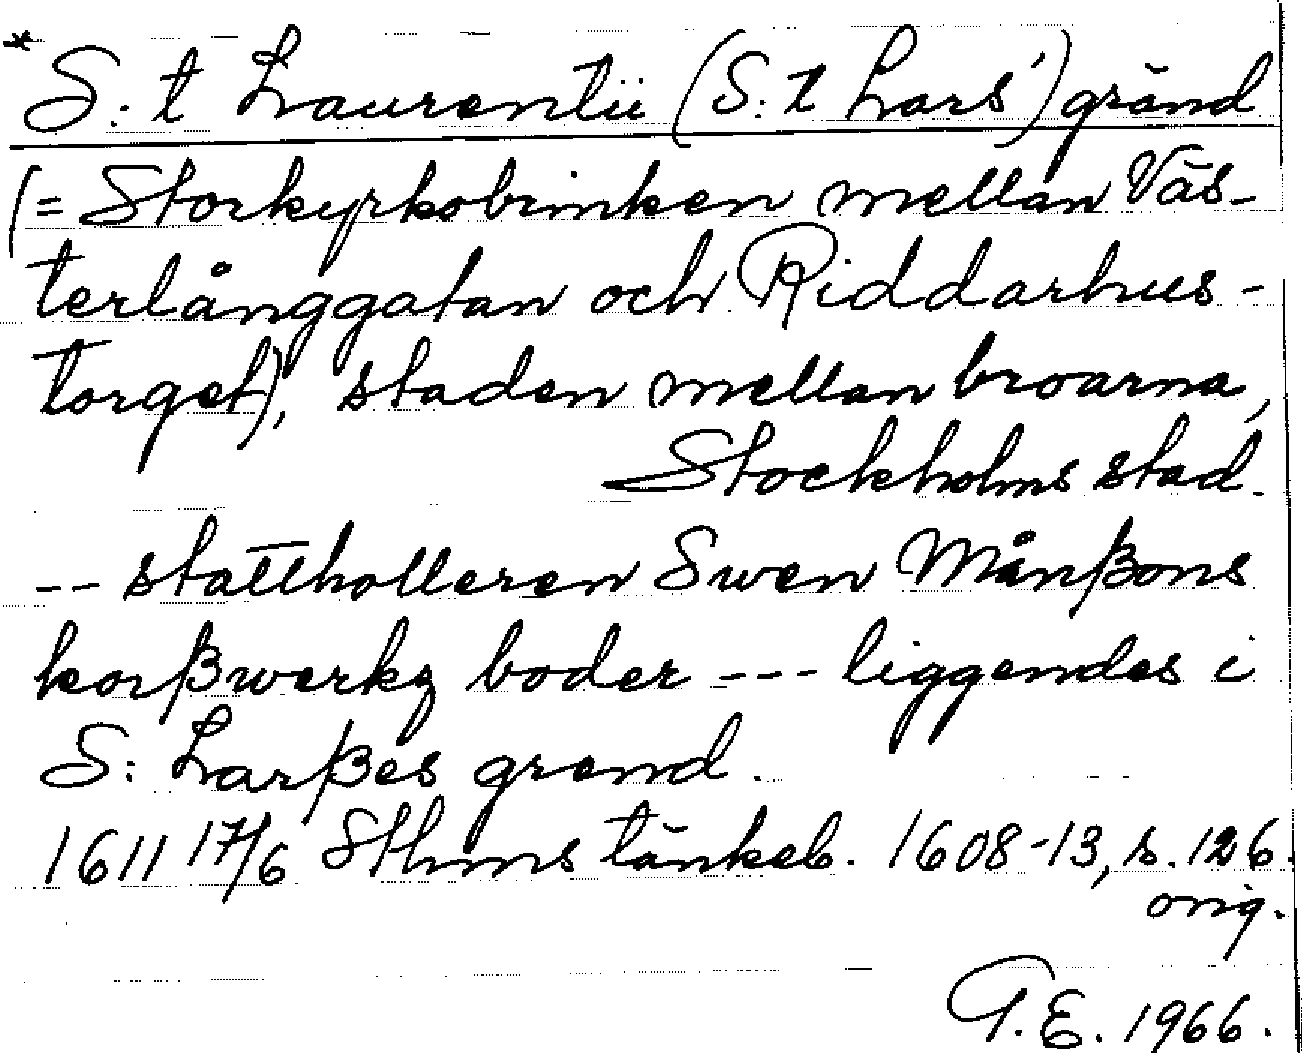 * S:t Laurentii (S:t Lars') gränd
(= Storkyrkobrinken mellan Väs-
terlånggatan och Riddarhus-
torget), staden mellan broarna,
Stockholms stad.
-- stattholleren Swen Månßons
korßwerkz boder --- liggendes i
S: Larßes grend.
1611 17/6 Sthms tänkeb. 1608-13, s. 126.
orig.
T.E. 1966.